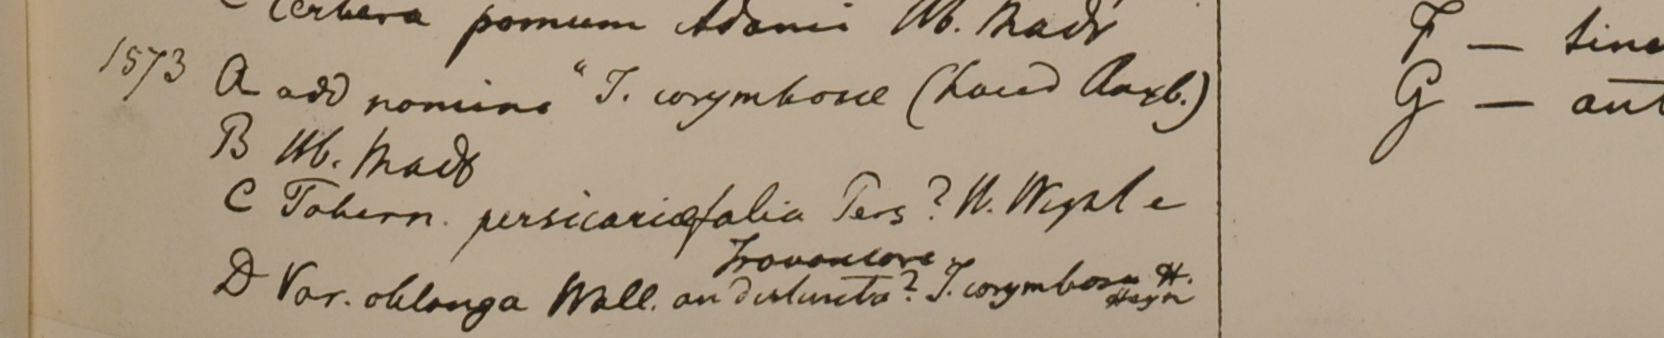 C Cerbera pomum Adami Hb. Madr
1573 A add nomine "T. corymbosæ (haud Roxb.)
B Hb. Madr
C Tabern. persicariæfolia Pers? H. Wight e
Travancore
D Var. oblonga Wall. an distincta? T. corymbosa H. Heyn
F —
G —